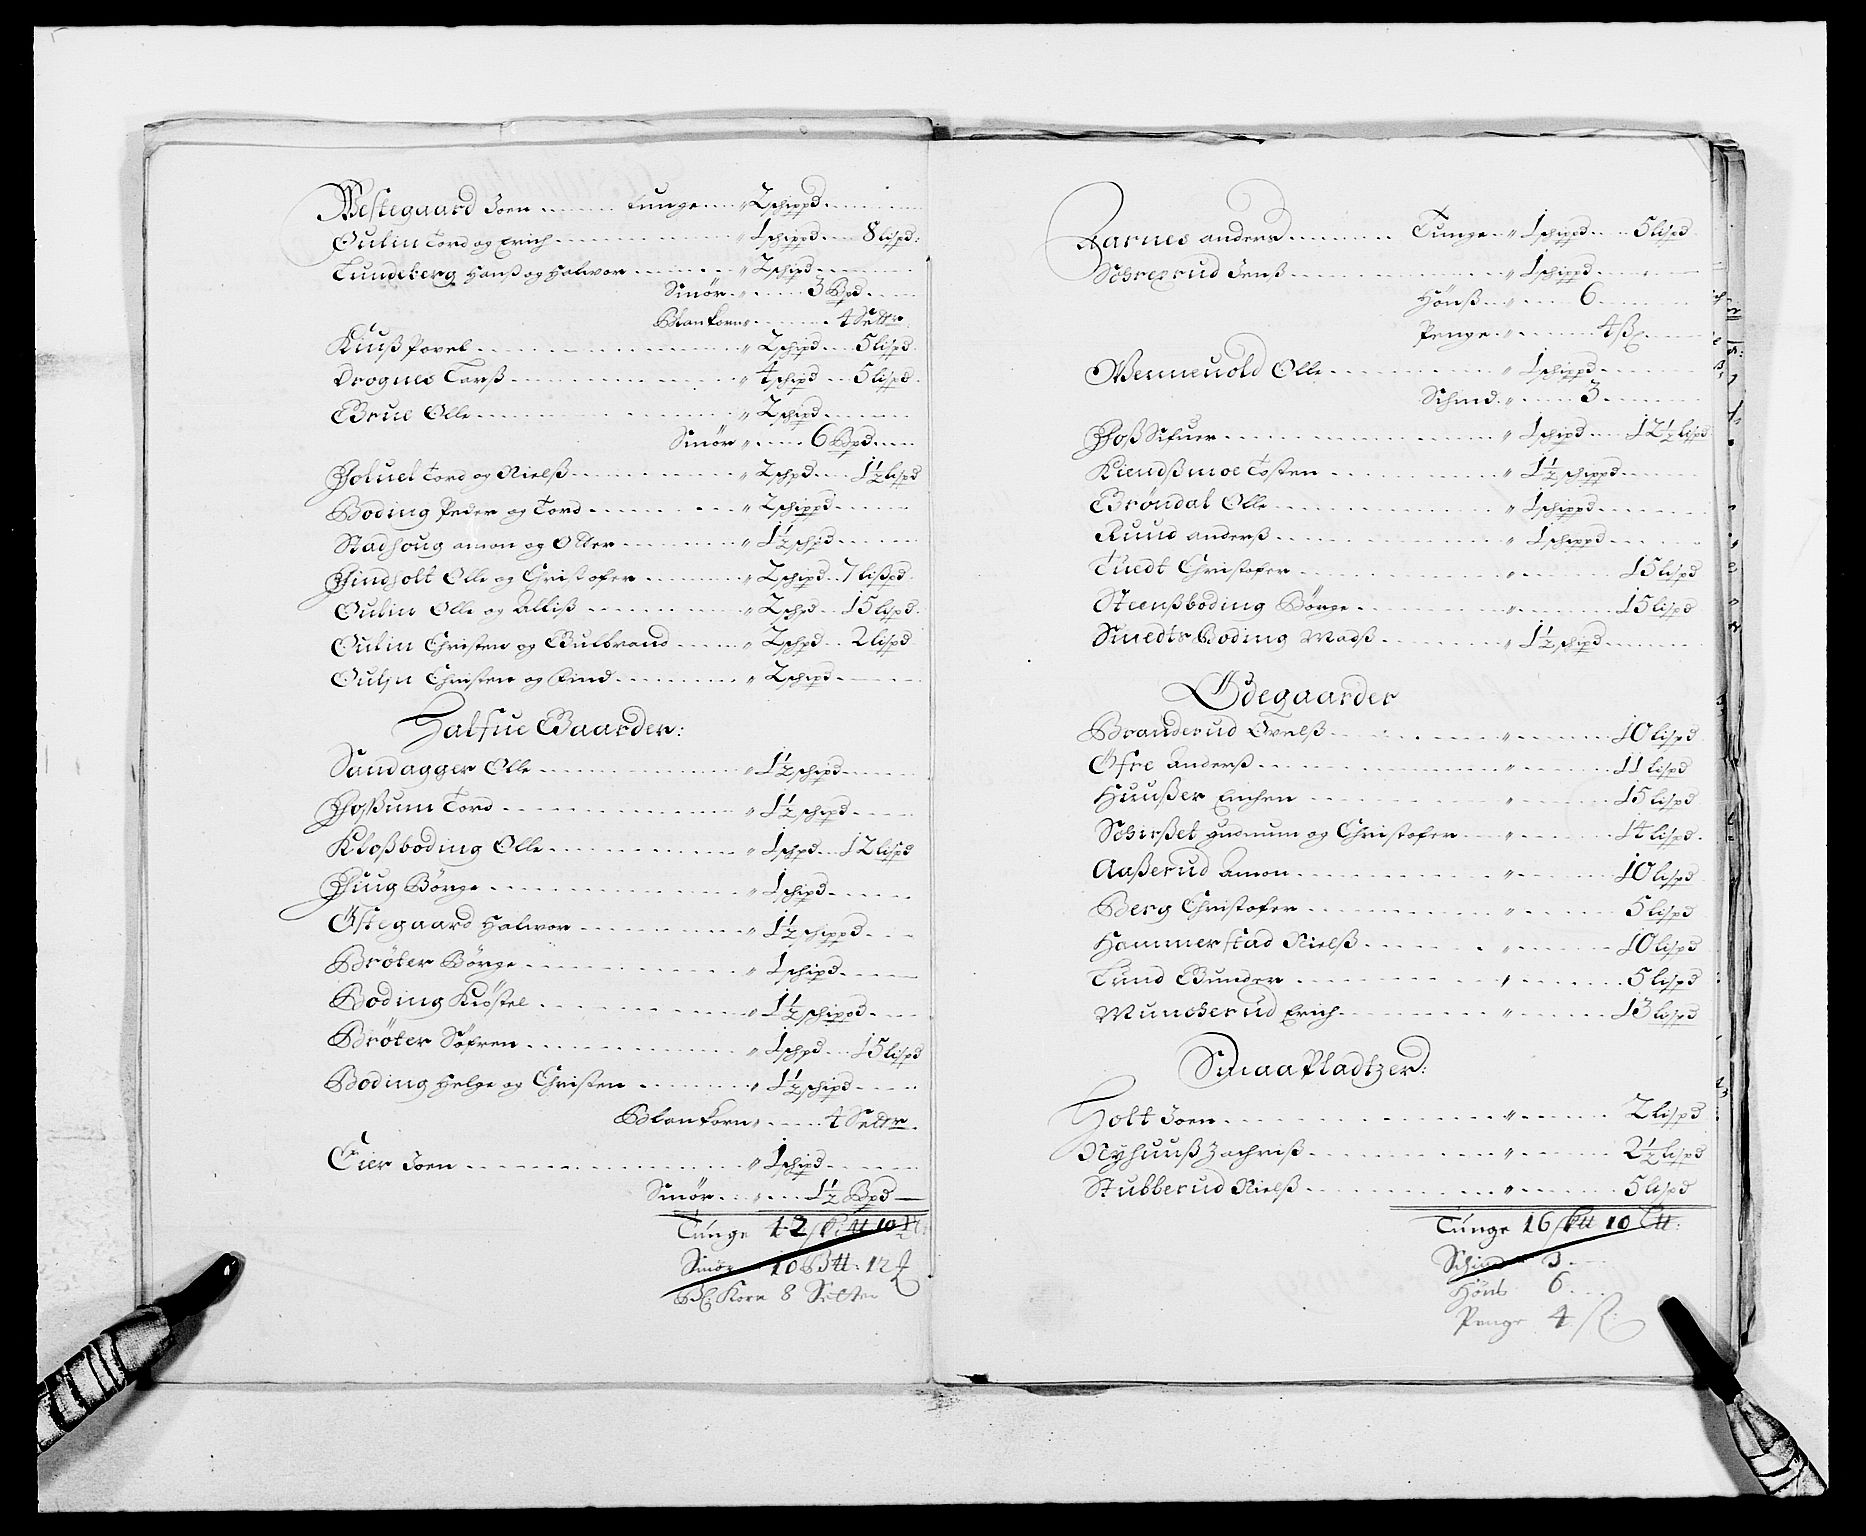 Westegaard Joen ...... Tunge .. " 2 schippd
Gulin Tord og Erich ...... " 1 schippd .. 8 lispd:
Lundeberg Hanß og Halwor ...... " 2 schipd
Smör " .... 3 Bpd
Blankorn .... 4 Settr
Kiuß Povel ...... " 2 schipd .. 5 lispd
Drognes Larß ...... " 4 schipd .. 5 lispd
Brue Olle ...... " 2 schipd
Smör " .... 6 Bpd
Holuel Tord og Nielß ...... " 2 schpd .. 1½ lispd
Boding Peder og Tord ...... " 2 schippd
Stadhoug Amon og Otter ...... " 1½ schpd
Hindholt Olle og Christofer ...... " 2 schipd .. 7 lißpd
Gulin Olle og Alliß ...... " 2 schpd .. 15 lispd
Gulin Christen og Gulbrand ...... " 2 schpd .. 2 lispd
Guljn Christen og Find ...... " 2 schipd
Halfue Gaarder:
Sandagger Olle ...... " 1½ schipd
Hoßum Tord ...... " 1½ schipd
Kloßboding Olle ...... " 1 schpd .. 12 lispd
Hiug Börge ...... " 1 schipd
Östegaard Halwor ...... " 1½ schippd
Bröter Börge ...... " 1 schipd
Boding Kiöstel ...... " 1½ schippd
Bröter Söfren ...... " 1 schpd .. 15 lispd
Boding Helge og Christen ...... " 1½ schipd
Blankorn " .... 4 Settr
Eier Joen ...... " 1 schipd
Smör .. " .. 1½ Bpd
Tunge 42
Smör 10 Btt. 12
Bl: Korn 8 Setter
Aarnes Anders ...... Tunge .. " 1 schippd .. 5 lispd
Schrezrud Jenß ...... " 1 schippd
Hönß .. " .... 6
Penge .. " .... 4 ß
Wenneuold Olle ...... " 1 schippd
Schind .. " .... 3
Hoß Sifuer ...... " 1 schipd .. 12½ lispd
Kiendßmoe Tosten ...... " 1½ schippd
Bröndal Olle ...... " 1 schippd
Ruud Anderß ...... " 1 schippd
Tuedt Christofer ...... " .... 15 lispd
Steenßboding Börge ...... " .... 15 lispd
Smedts Boding Madß ...... " 1½ schipd
Ödegaarder
Branderud Ewelß ...... " .... 10 lispd
Öfre Anderß ...... " .... 11 lispd
Huußer Emhen ...... " .... 15 lispd
Schirßet Gudmum og Christofer ...... " .... 14 lispd
Aaßerud Amon ...... " .... 10 lispd
Berg Christofer ...... " .... 5 lispd
Hammerstad Nielß ...... " .... 10 lispd
Lund Gunder ...... " .... 5 lispd
Muncherud Erich ...... " .... 13 lispd
Smaa Pladtzer:
Holt Joen ...... " .... 2 lispd
Nyhuuß Zachriß ...... " .... 2½ lispd
Stubberud Nielß ...... " .... 5 lispd
Tunge 16 sktt 10 Ltt:
Schind 3
Höns 6
Penge 4 ß: